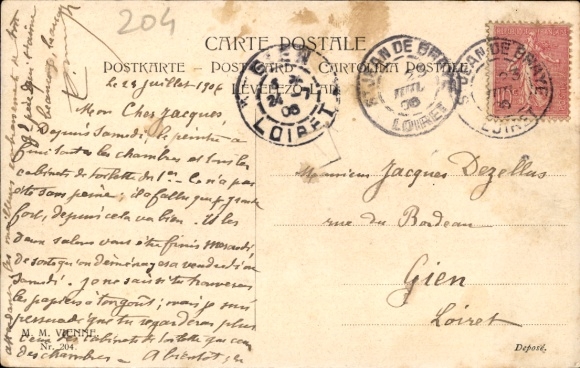 204
CARTE POSTALE
POSTKARTE — POST CARD — CARTOLINA POSTALE
LEVELEZŐ LAP
Le 24 juillet 1906
Mon Cher Jacques,
Depuis Samedi, le peintre a
fini toutes les chambres et tous les
cabinets de toilette du 1er. Ce n'a pas
été sans peine; il a fallu que je gronde
fort, depuis cela va bien. Et les
deux salons vont être finis
de sorte qu'on déménagera vendredi ou
Samedi. Je ne sais si tu trouveras
les papiers à ton goût; mais je suis
persuadé que tu regarderas plus
ceux des cabinets de toilette que ceux
des chambres. A bientôt, en
attendant les meilleurs
GIEN
24
06
LOIRET
ST JEAN DE BRAYE
06
LOIRET
ST JEAN DE BRAYE
LOIRET
Monsieur Jacques Dezellus
rue du Bordeau
Gien
Loiret
M. M. VIENNE
Nr. 204.
Deposé.